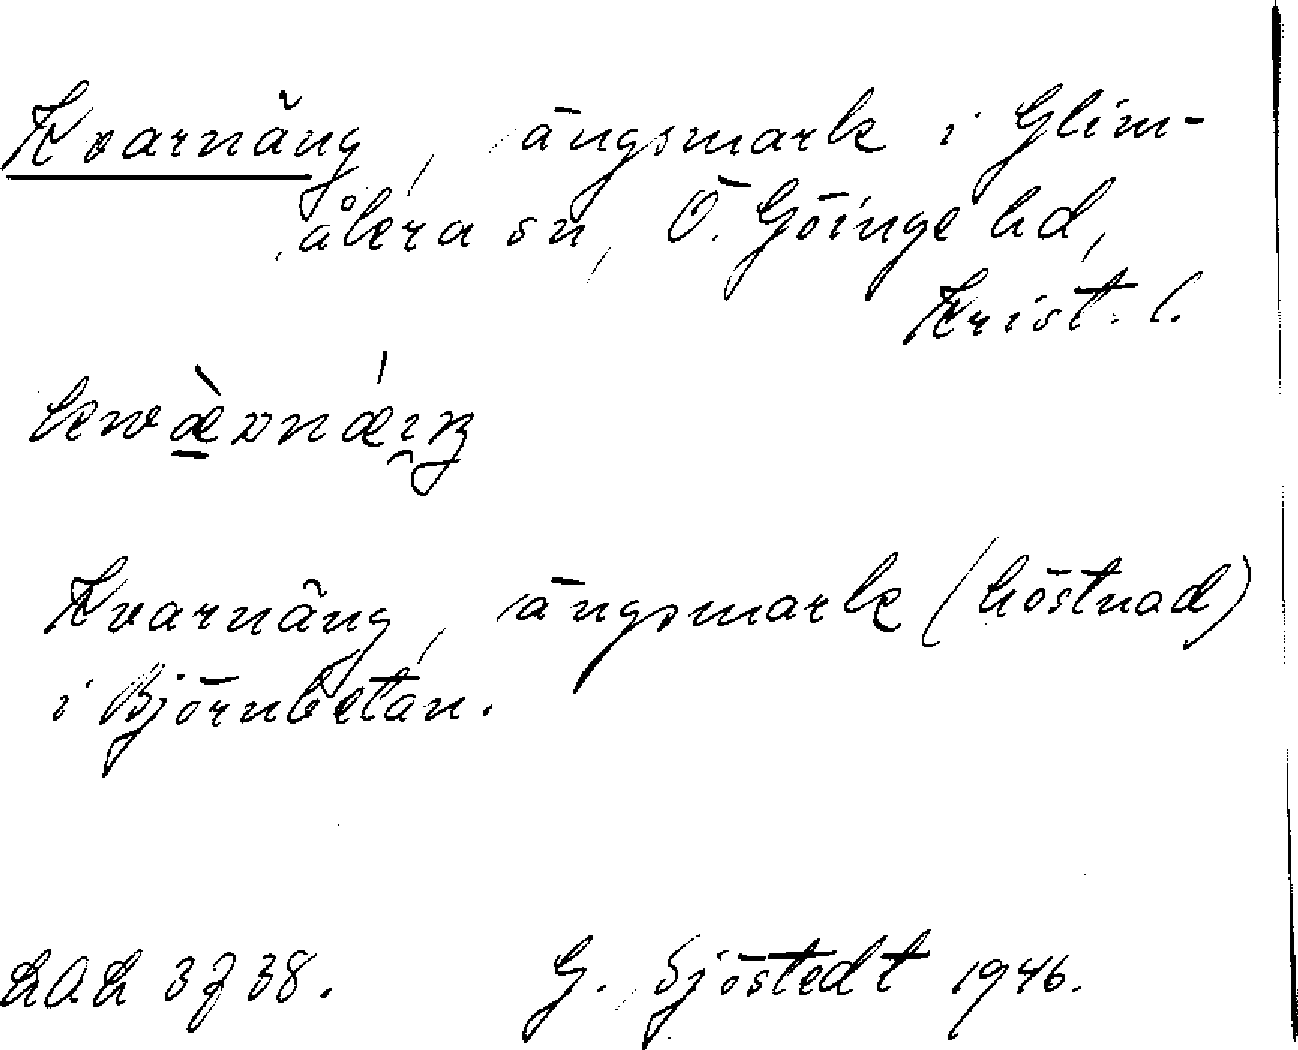 Kvarnäng, ängsmark i Glim-
åkra sn, Ö. Göinge hd,
Krist. l.
Kvarnäng, ängsmark (höstnad)
i Björnbetan.
G. Sjöstedt 1946.